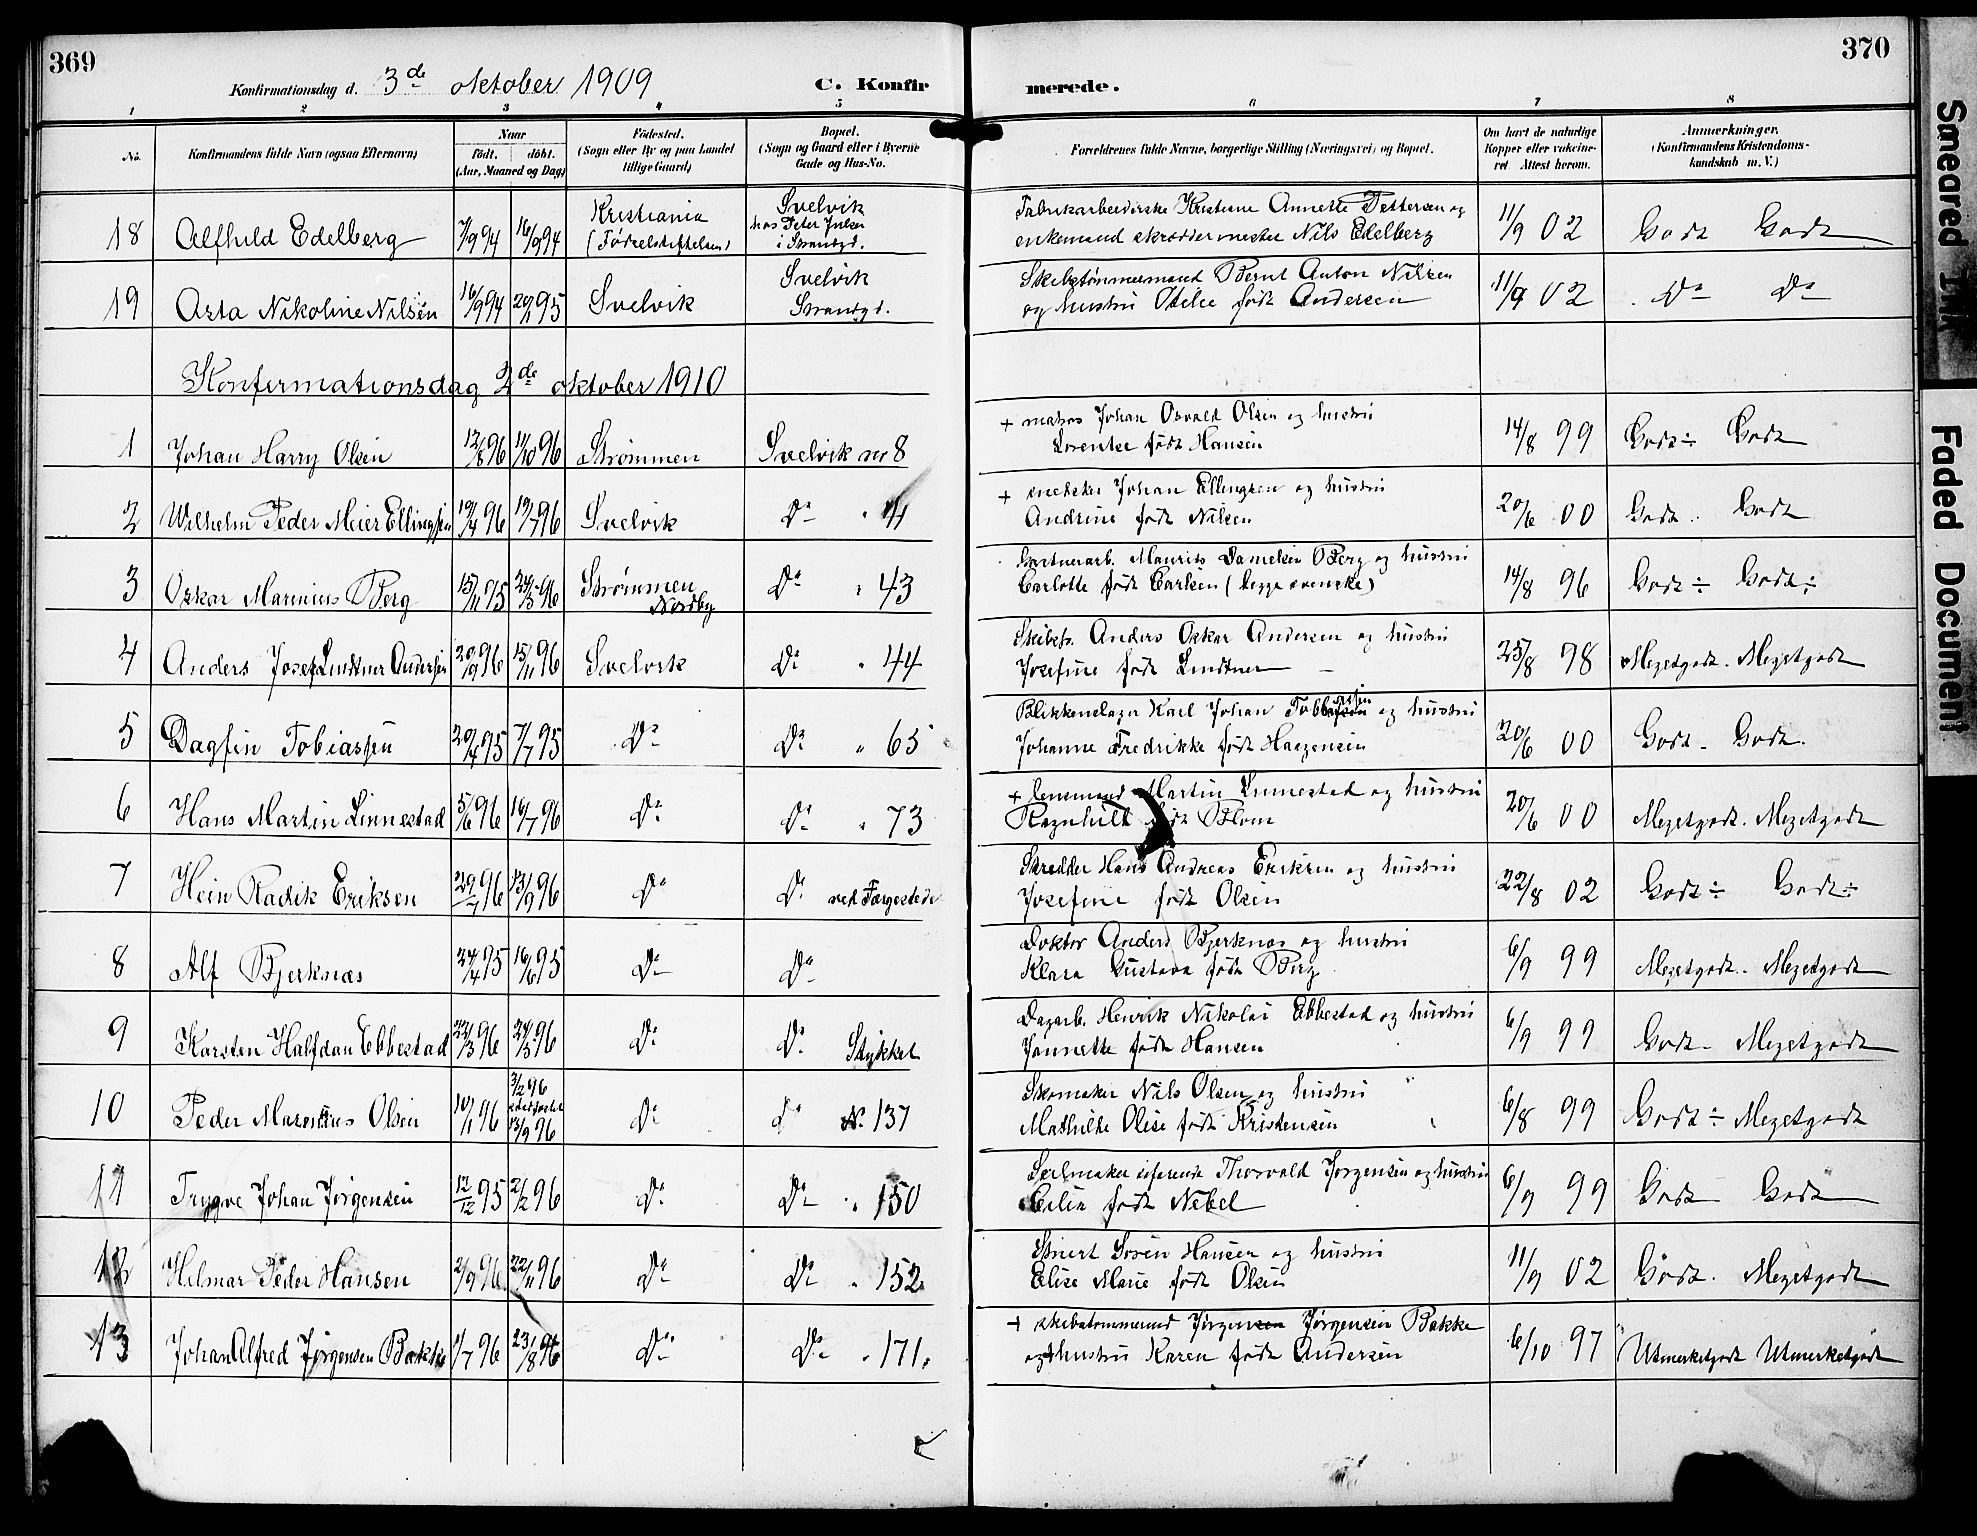 369
370
Konfirmationsdag d. 3de oktober 1909
C. Konfirmerede.
1 2 3 4 5 6 7 8
No.
Konfirmandens fulde Navn (ogsaa Efternavn)
Naar
født. døbt.
(Aar, Maaned og Dag)
Fødested.
(Sogn eller By og paa Landet
tillige Gaard)
Bopæl.
(Sogn og Gaard eller i Byerne
Gade og Hus-No.
Forældrenes fulde Navne, borgerlige Stilling (Næringsvei) og Bopæl.
Om havt de naturlige
Kopper eller vakcine-
ret. Attest herom.
Anmærkninger.
(Konfirmandens Kristendoms-
kundskab m. V.)
18 Alfhild Edelberg 7/9 94 16/9 94 Kristiania (Fødselsstiftelsen) Svelvik hos Peter Julsen i Strandgd. Fabrikarbeiderske Kristine Annette Pettersen og
enkemand skræddermester Nils Edelberg 11/9 02 Godt Godt
19 Asta Nikoline Nilsen 16/9 94 20/1 95 Svelvik Svelvik Strandgd. Skibstømmermand Bernt Anton Nilsen
og hustru Otilie født Andersen 11/9 02 Do Do
Konfirmationsdag 2de oktober 1910
1 Johan Harry Olsen 12/8 96 11/10 96 Strømmen Svelvik no 8 + matros Johan Osvald Olsen og hustru
Lorentse født Hansen 14/8 99 Godt÷ Godt
2 Wilhelm Peder Meier Ellingsen 19/4 96 19/7 96 Svelvik Do " 41 + snekker Johan Ellingsen og hustru
Andrine født Nilsen 20/6 00 Godt. Godt
3 Oskar Marinius Berg 15/11 95 24/5 96 Strømmen Nordby Do " 43 Gartnerarb. Maurits Danielsen Berg og hustru
Carlotte født Carlsen (begge svenske) 14/8 96 Godt÷ Godt÷
4 Anders Josef Lindtner Andersen 20/9 96 15/11 96 Svelvik Do " 44 Skibsf. Anders Oskar Andersen og hustru
Josefine født Lindtner 25/8 98 Megetgodt. Megetgodt
5 Dagfin Tobiassen 20/4 95 7/7 95 Do Do " 65 Blikkenslager Karl Johan Tobiassen og hustru
Johanne Fredrikke født Haagensen 20/6 00 Godt. Godt.
6 Hans Martin Linnestad 5/6 96 19/7 96 Do Do " 73 + lensmand Martin Linnestad og hustru
Ragnhild født Blom 20/6 00 Megetgodt. Megetgodt
7 Hein Radik Eriksen 29/7 96 13/9 96 Do Do ved Færgestedet Skredder Hans Andreas Eriksen og hustru
Josefine født Olsen 22/8 02 Godt÷ Godt÷
8 Alf Bjerknæs 24/4 95 16/6 95 Do Do Doktor Anders Bjerknæs og hustru
Klara Gustava født Berg 6/9 99 Megetgodt. Megetgodt
9 Karsten Halfdan Ebbestad 22/3 96 24/5 96 Do Do Stykket Dagarb. Henrik Nikolai Ebbestad og hustru
Jannette født Hansen 6/9 99 Godt. Megetgodt
10 Peder Marenius Olsen 10/1 96 2/2 96 13/9 96 Do Do No. 137 Skomaker Nils Olsen og hustru
Mathilde Olise født Kristensen 6/8 99 Godt÷ Megetgodt
11 Trygve Johan Jørgensen 12/12 95 2/2 96 Do Do " 150 Seilmaker Thorvald Jørgensen og hustru
Celin født Nebel 6/9 99 Godt Godt
12 Hilmar Peder Hansen 2/9 96 22/11 96 Do Do " 152 Stuert Soren Hansen og hustru
Elise Marie født Olsen 11/9 02 Godt. Megetgodt
13 Johan Alfred Jørgensen Bakke 1/7 96 23/8 96 Do Do " 171. + skibstømmermd Jørgen Jørgensen Bakke
og hustru Karen født Andersen 6/10 97 Utmerketgodt Utmerketgodt
Smeared Ink
Faded Document